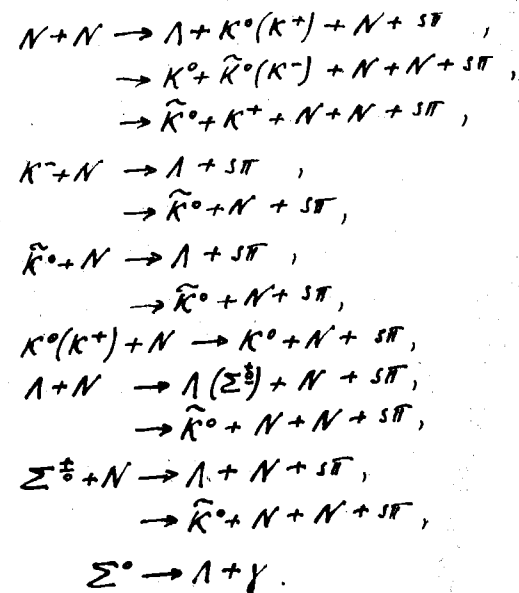 N + N → Λ + K⁰(K⁺) + N + sπ ,
→ K⁰ + K̃⁰(K⁻) + N + N + sπ ,
→ K̃⁰ + K⁺ + N + N + sπ ,
K⁻ + N → Λ + sπ ,
→ K̃⁰ + N + sπ ,
K̃⁰ + N → Λ + sπ ,
→ K̃⁰ + N + sπ ,
K⁰(K⁺) + N → K⁰ + N + sπ ,
Λ + N → Λ(Σ^±_0) + N + sπ ,
→ K̃⁰ + N + N + sπ ,
Σ^±_0 + N → Λ + N + sπ ,
→ K̃⁰ + N + N + sπ ,
Σ⁰ → Λ + γ .